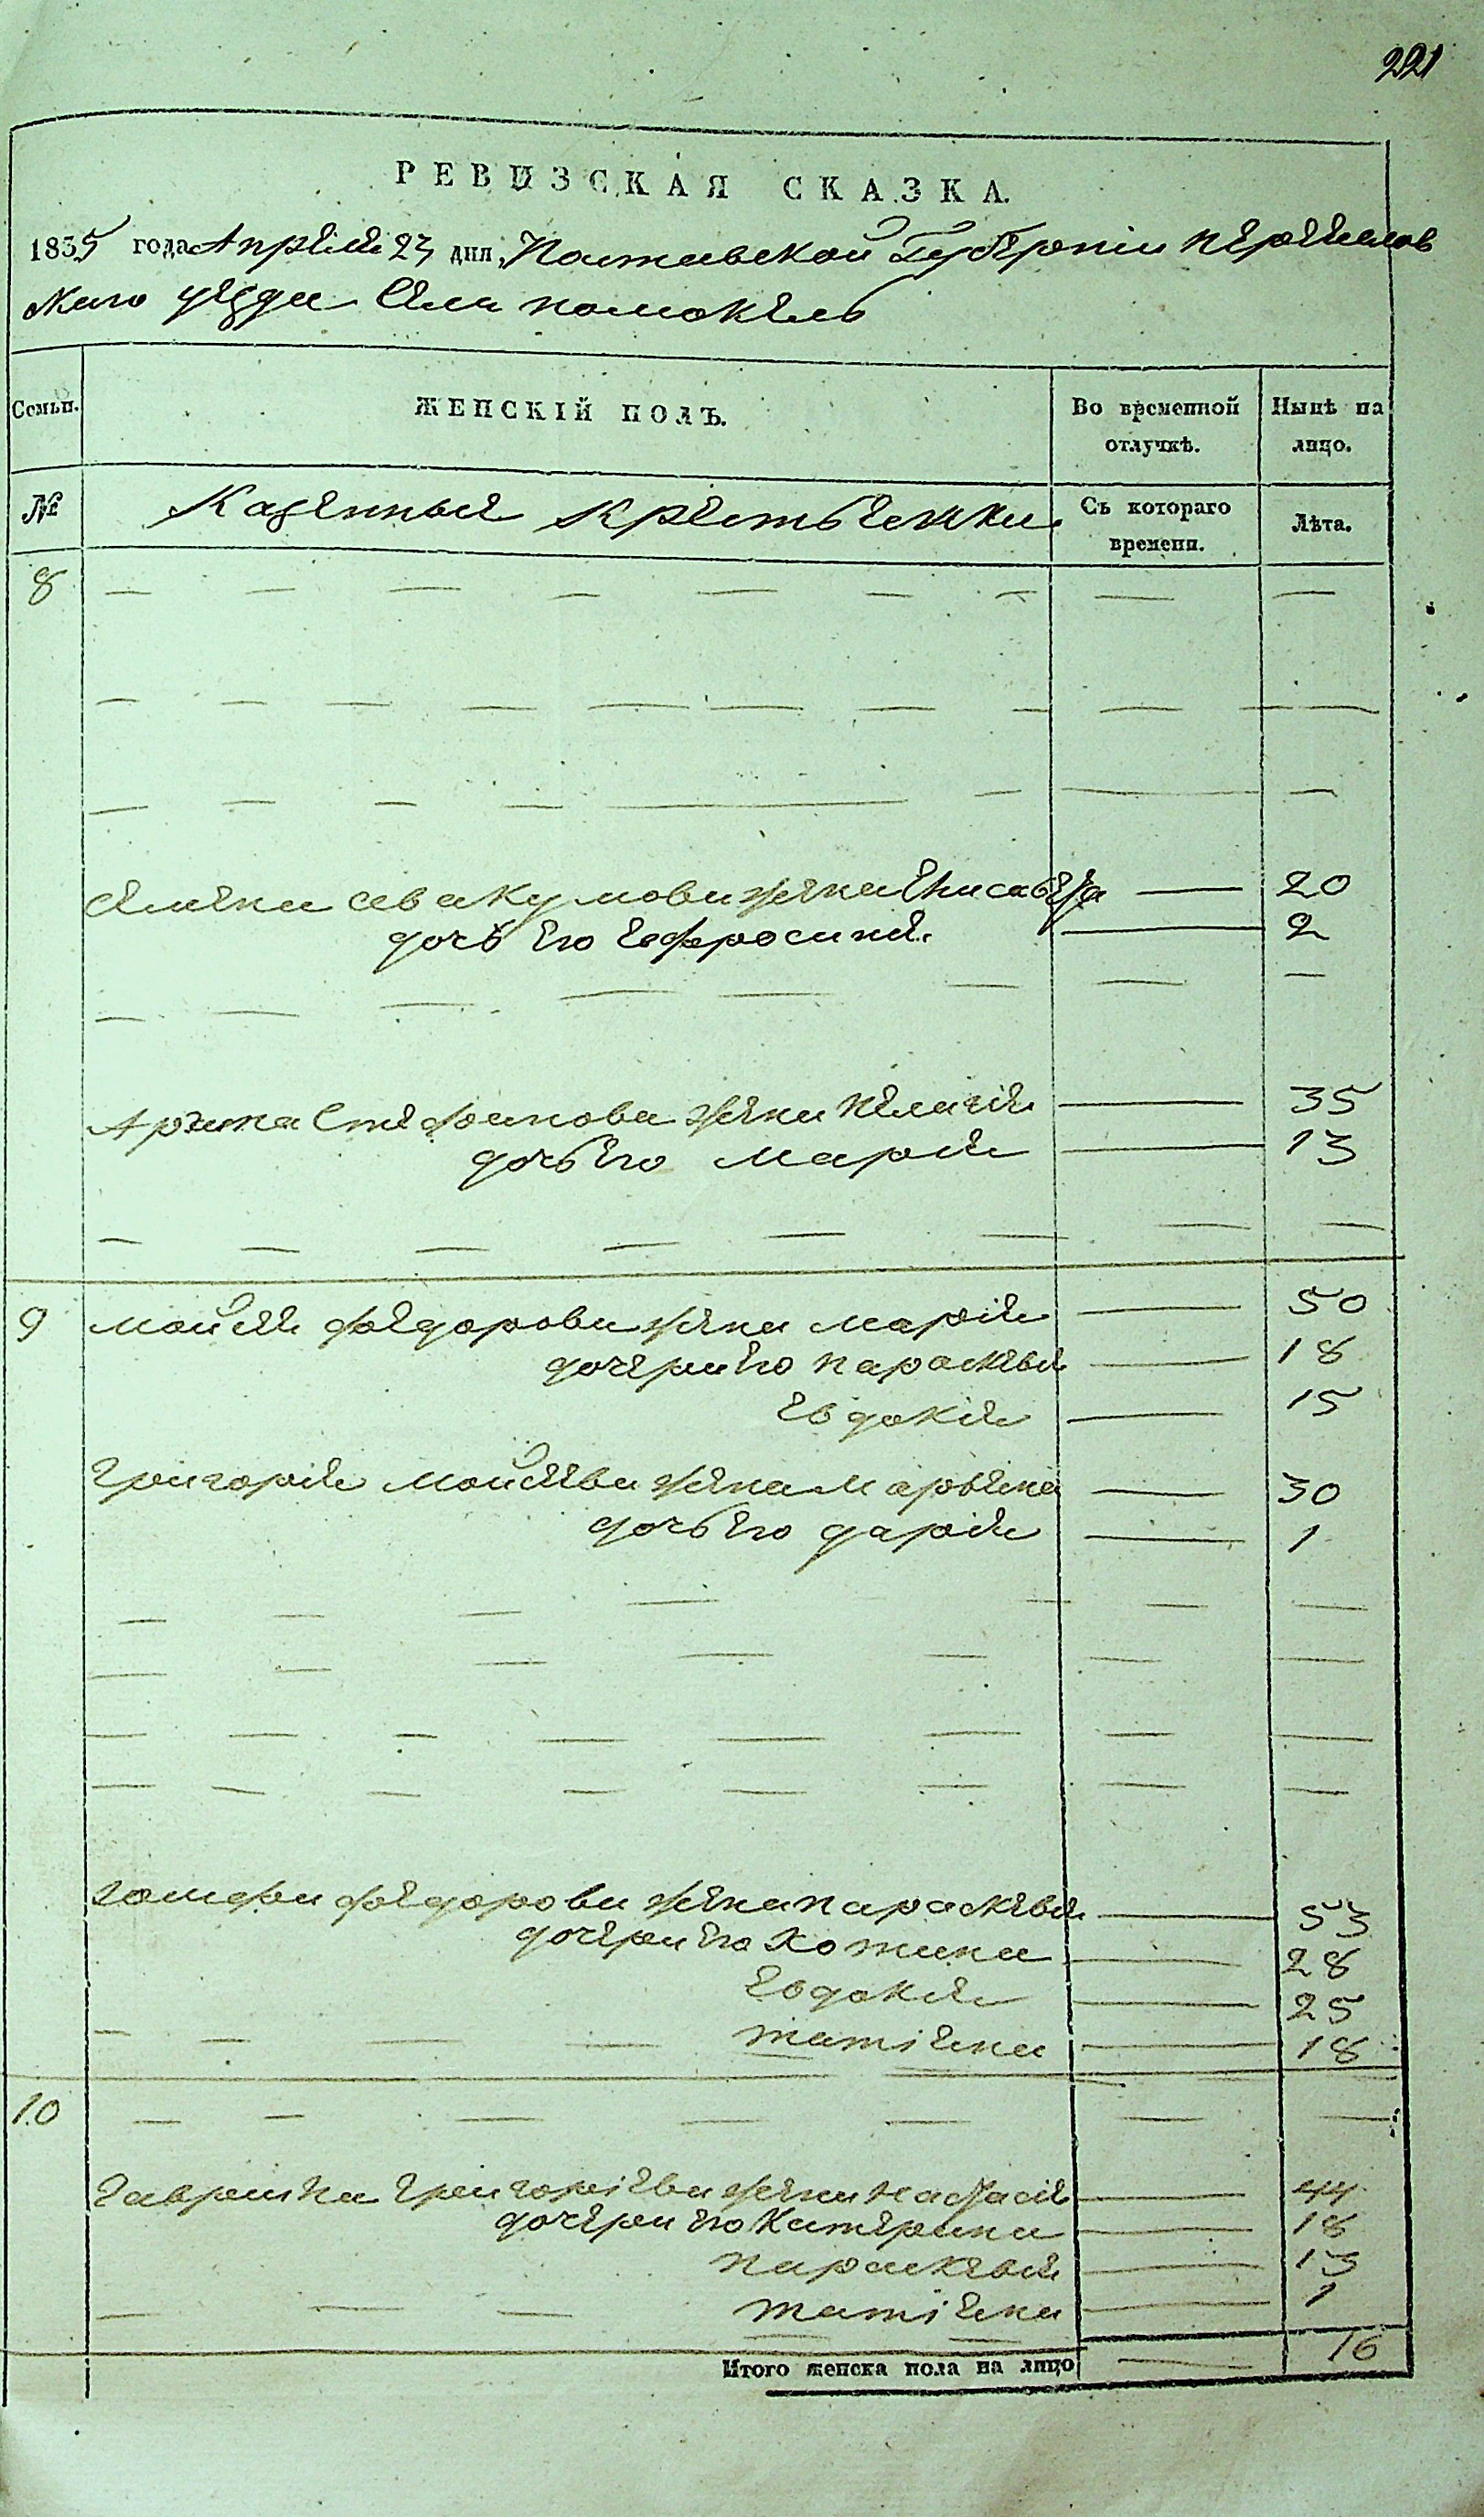 221
РЕВИЗСКАЯ СКАЗКА.
1835 года Апреля 23 дня, Полтавской Губернии переяслов
скаго уезда Села помокель
Семьи.
ЖЕНСКІЙ ПОЛЪ.
Во временной отлучкѣ.
Нынѣ на лицо.
№
Казенныя крестьянки
Съ котораго времени.
Лѣта.
8
Авакумова жена Елисавета 20
дочь его Ефросиния 2
Стефанова жена пелагия 35
дочь его Мария 13
9 мойсея федорова жена мария 50
дочери его параскевия 18
Евдокия 15
григория мойсеева жена марьяна 30
дочь его дария 1
федорова жена параскевия 53
дочери его 28
Евдокия 25
татіяна 18
10
гаврила григоріева жена настасия 44
дочери его катерина 18
параскевия 13
татіяна 1
Итого женска пола на лицо 16